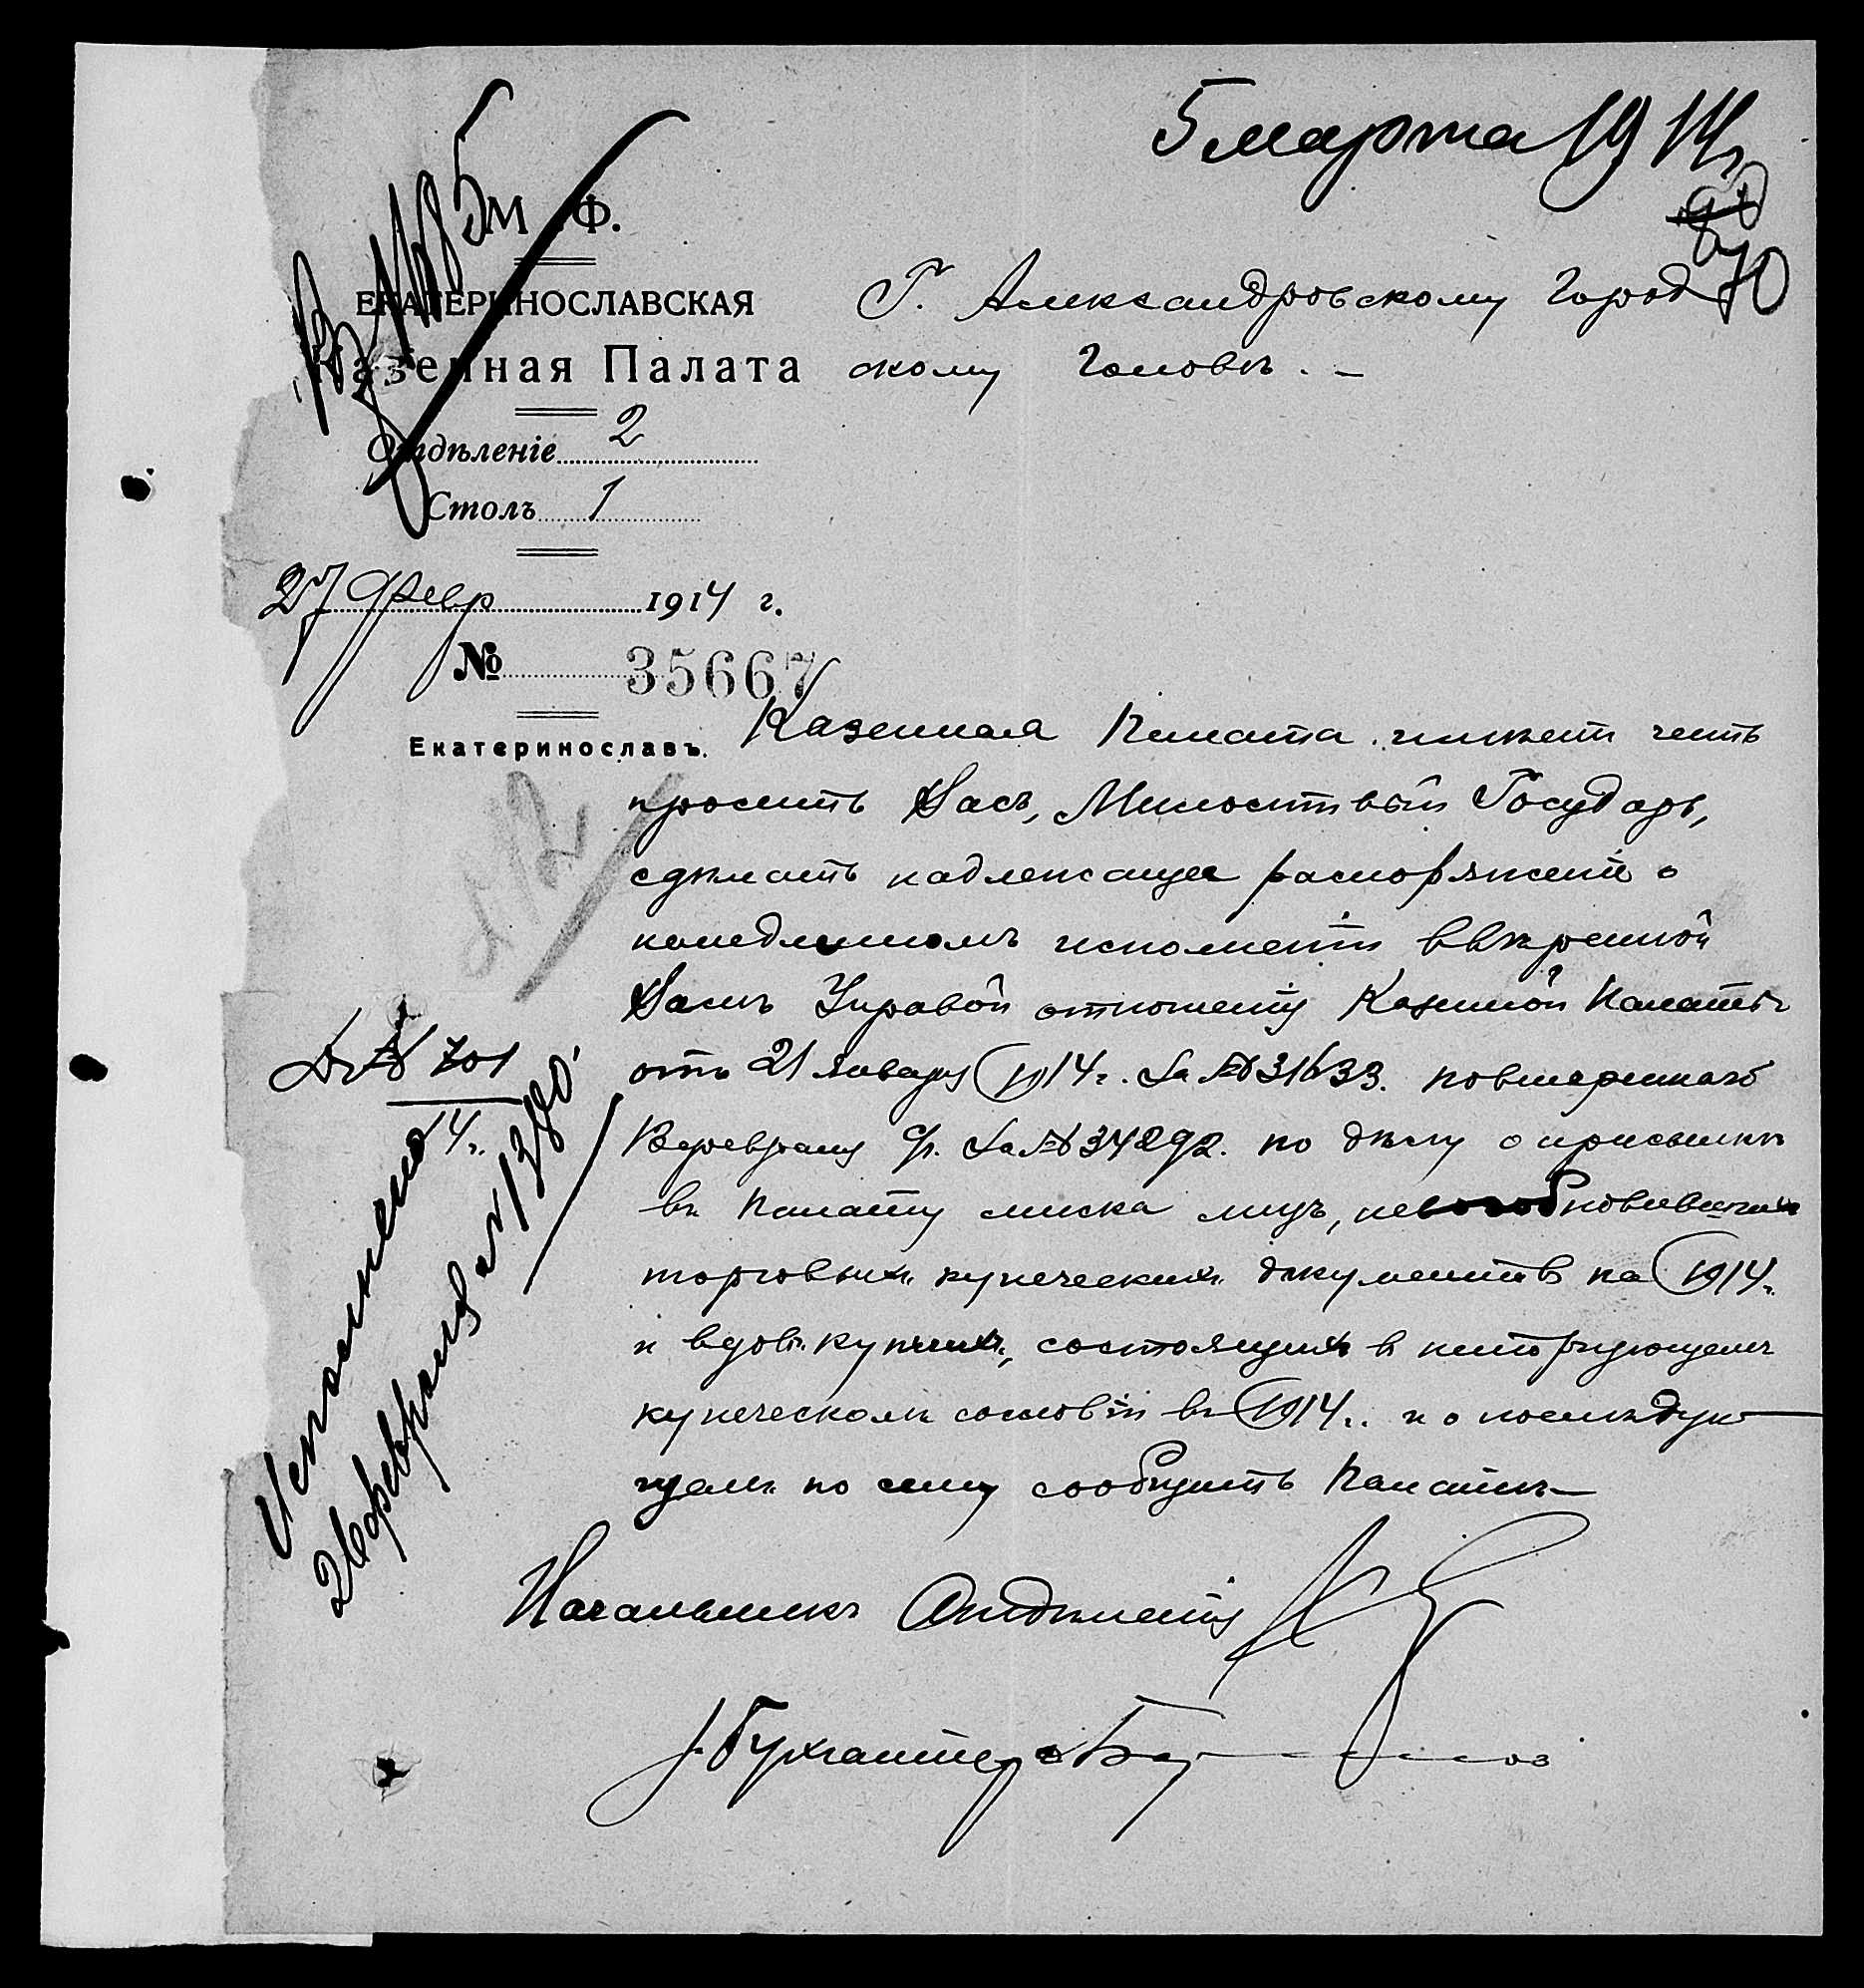 5 марта 1914 г.
М. Ф.
ЕКАТЕРИНОСЛАВСКАЯ
Казенная Палата
Отдѣленіе 2
Столъ 1
27 Февр 1914 г.
№ 35667
Екатеринославъ.
70
Г. Александровскому Город
скому Головѣ. –
Казенная Палата имѣетъ честь
просить Васъ, Милостивый Государь,
сдѣлать надлежащее распоряженіе о
немедленномъ исполненіи ввѣренной
Вамъ Управой отношенія Казенной Палаты
отъ 21 января 1914 г. за № 31633. повтореннаго
февраля с/г. за № 34292. по дѣлу о присылкѣ
въ Палату списка лицъ, невозобновившихъ
торговыхъ купеческихъ документовъ на 1914 г.
и вдовъ купчихъ, состоящихъ въ
купеческомъ сословіи въ 1914 г. и о послѣдую
щемъ по сему сообщить Палатѣ
Начальникъ Отдѣленія
Бухгалтеръ
№ 701
14 г.
Исполнено
26 февраля № 1380.